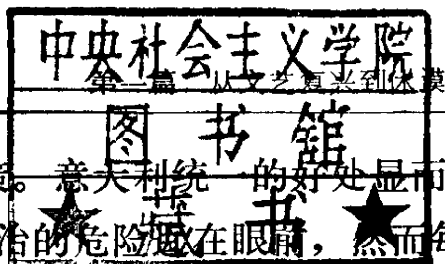 中央社会主义学院
第一篇 从文艺复兴到休谟
图书馆
意大利统一的好处显而
藏书
治的危险迫在眼前，然而每